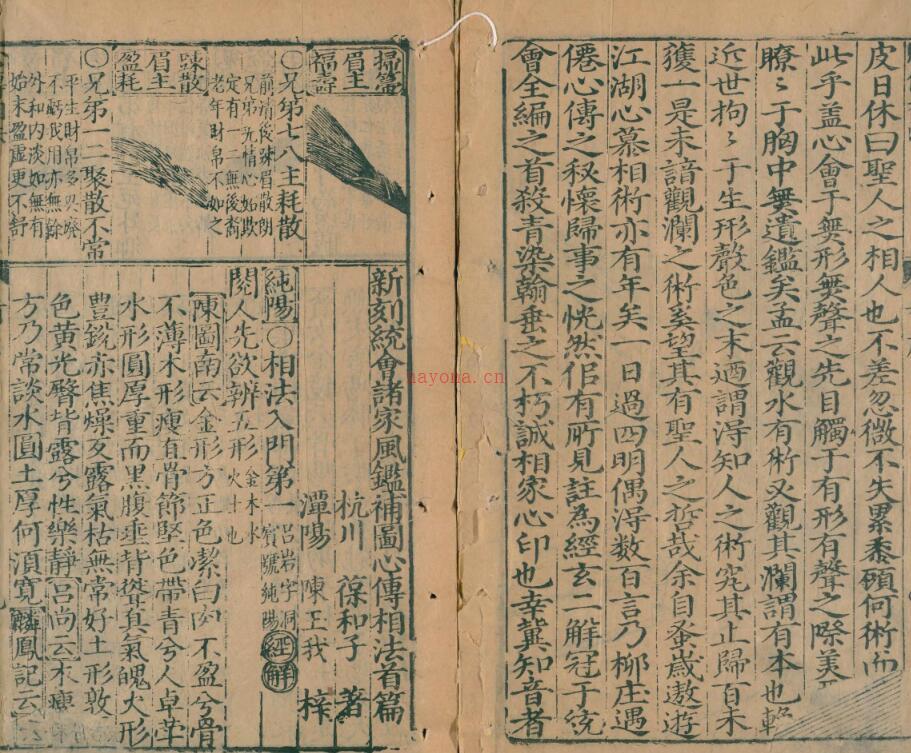 皮日休曰聖人之相人也不差忽微不失累黍顧何術而
此乎盖心會于無形無聲之先目觸于有形有聲之際美
瞭〻于胸中無遺鑑矣孟云觀水有術又觀其瀾謂有本也
近世拘〻于生形聲色之末迺謂得知人之術究其止歸百未
獲一是未諳觀瀾之術奚望其有聖人之哲哉余自蚤歲遨遊
江湖心慕相術亦有年矣一日過四明偶得数百言乃柳庄遇
僊心傳之秘懷歸事之恍然佀有所見註為經玄二解冠于統
會全編之首殺青染翰垂之不朽誠相家心印也幸冀知音者
掃箒
眉主
福壽
〇兄弟七八主耗散
前清後疎眉散朗
兄弟無情心妬欺
定有一二無後裔
老年財帛不如之
踈散
眉主
盈耗
〇兄弟一二聚散不常
平生財帛多
不虧民用亦無餘
外和内淡如無有
始末盈虛更不舒
新刻統會諸家風鑑補圖心傳相法首篇
杭川 葆和子 著
潭陽 陳玉我 梓
純陽〇相法入門第一 呂岩字洞賓號純陽 經解
閱人先欲辨五形 金木水火土也
陳圖南云金形方正色潔白肉不盈兮骨
不薄木形瘦直骨節堅色帶青兮人卓犖
水形圓厚重而黑腹垂背聳真氣魄火形
豐銳赤焦燥反露氣枯無常好土形敦
色黄光臀背露兮性樂靜呂尚云木瘦
方乃常談水圓土厚何須寬麟鳳記云
nayona.cn